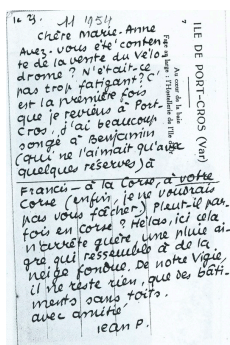 le 23. 11 1954
Chère Marie-Anne
Avez-vous été conten-
te de la vente du Vélo-
drome? N'était-ce
pas trop fatigant? C'
est la première fois
que je reviens à Port-
Cros, j'ai beaucoup
songé à Benjamin
(qui ne l'aimait qu'avec
quelques réserves) à
Francis - à la Corse, à votre
Corse (enfin, je ne voudrais
pas vous fâcher) Pleut-il par-
fois en Corse? Hélas, ici cela
n'arrête guère, une pluie ai-
gre qui ressemble à de la
neige fondue. De notre Vigie,
il ne reste rien, que des bâti-
ments sans toits.
avec amitié
Jean P.
7
ILE DE PORT-CROS (Var)
Au cœur de la baie
Face au large : l'Hostellerie de l'Ile